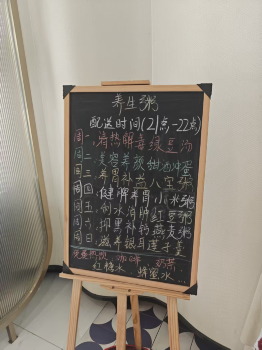 养生粥
配送时间(21点-22点)
周一:清热解毒绿豆汤
周二:美容养颜甜酒冲蛋
周三:养胃补益八宝粥
周四:健脾养胃小米粥
周五:利水消肿红豆粥
周六:抑黑补钙燕麦粥
周日:滋养银耳莲子羹
免费热饮:咖啡 奶茶
红糖水 蜂蜜水